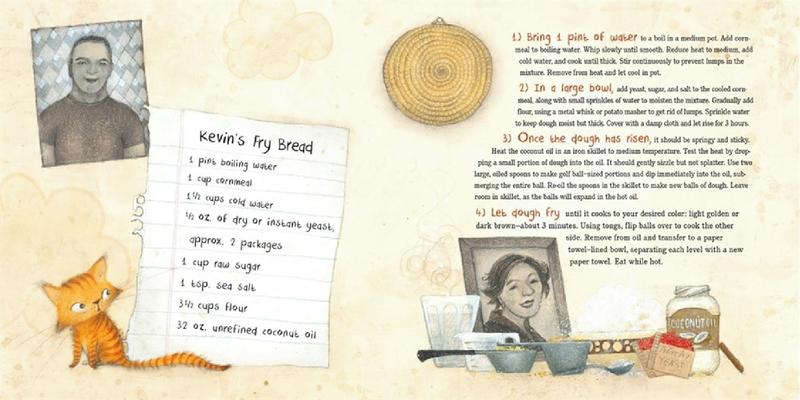 Kevin's Fry Bread
1 pint boiling water
1 cup cornmeal
1½ cups cold water
½ oz. of dry or instant yeast,
approx. 2 packages
1 cup raw sugar
1 tsp. sea salt
3½ cups flour
32 oz. unrefined coconut oil
1) Bring 1 pint of water to a boil in a medium pot. Add corn-
meal to boiling water. Whip slowly until smooth. Reduce heat to medium, add
cold water, and cook until thick. Stir continuously to prevent lumps in the
mixture. Remove from heat and let cool in pot.
2) In a large bowl, add yeast, sugar, and salt to the cooled corn-
meal, along with small sprinkles of water to moisten the mixture. Gradually add
flour, using a metal whisk or potato masher to get rid of lumps. Sprinkle water
to keep dough moist but thick. Cover with a damp cloth and let rise for 3 hours.
3) Once the dough has risen, it should be springy and sticky.
Heat the coconut oil in an iron skillet to medium temperature. Test the heat by drop-
ping a small portion of dough into the oil. It should gently sizzle but not splatter. Use two
large, oiled spoons to make golf ball-sized portions and dip immediately into the oil, sub-
merging the entire ball. Re-oil the spoons in the skillet to make new balls of dough. Leave
room in skillet, as the balls will expand in the hot oil.
4) Let dough fry until it cooks to your desired color: light golden or
dark brown—about 3 minutes. Using tongs, flip balls over to cook the other
side. Remove from oil and transfer to a paper
towel-lined bowl, separating each level with a new
paper towel. Eat while hot.
COCONUT OIL
YEAST